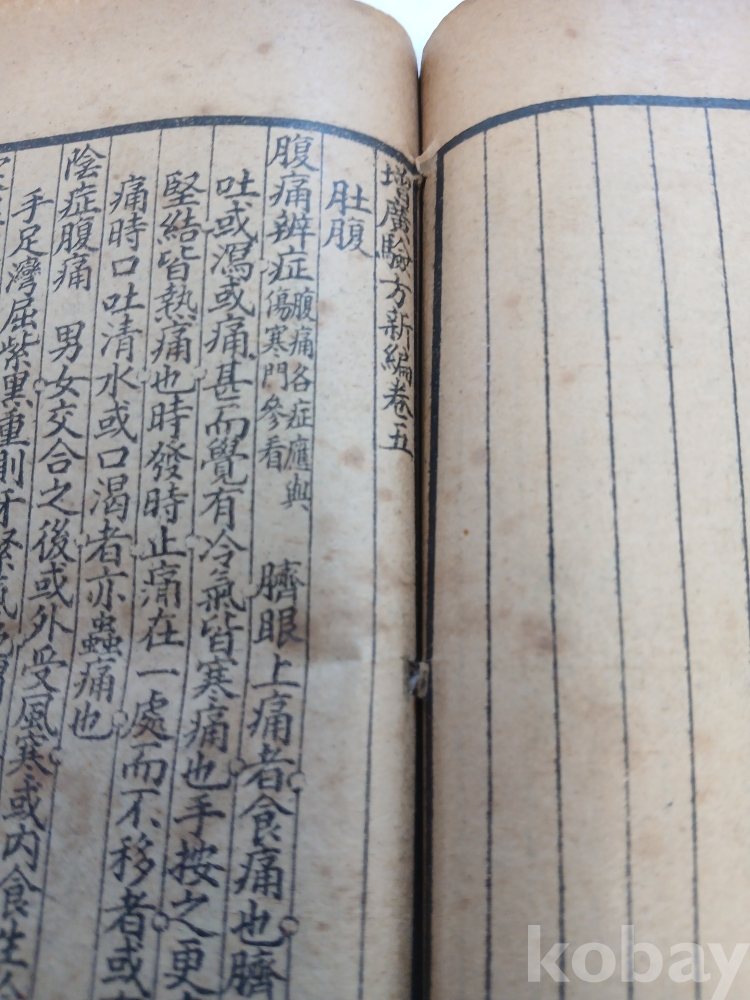 增廣驗方新編卷五
肚腹
腹痛辨症腹痛各症應與傷寒門參看 臍眼上痛者食痛也臍
吐或瀉或痛甚而覺有冷氣皆寒痛也手按之更
堅結皆熱痛也時發時止痛在一處而不移者或
痛時口吐清水或口渴者亦蟲痛也
陰症腹痛 男女交合之後或外受風寒或內食生冷
手足灣屈紫黑重則牙緊氣絕
kobay